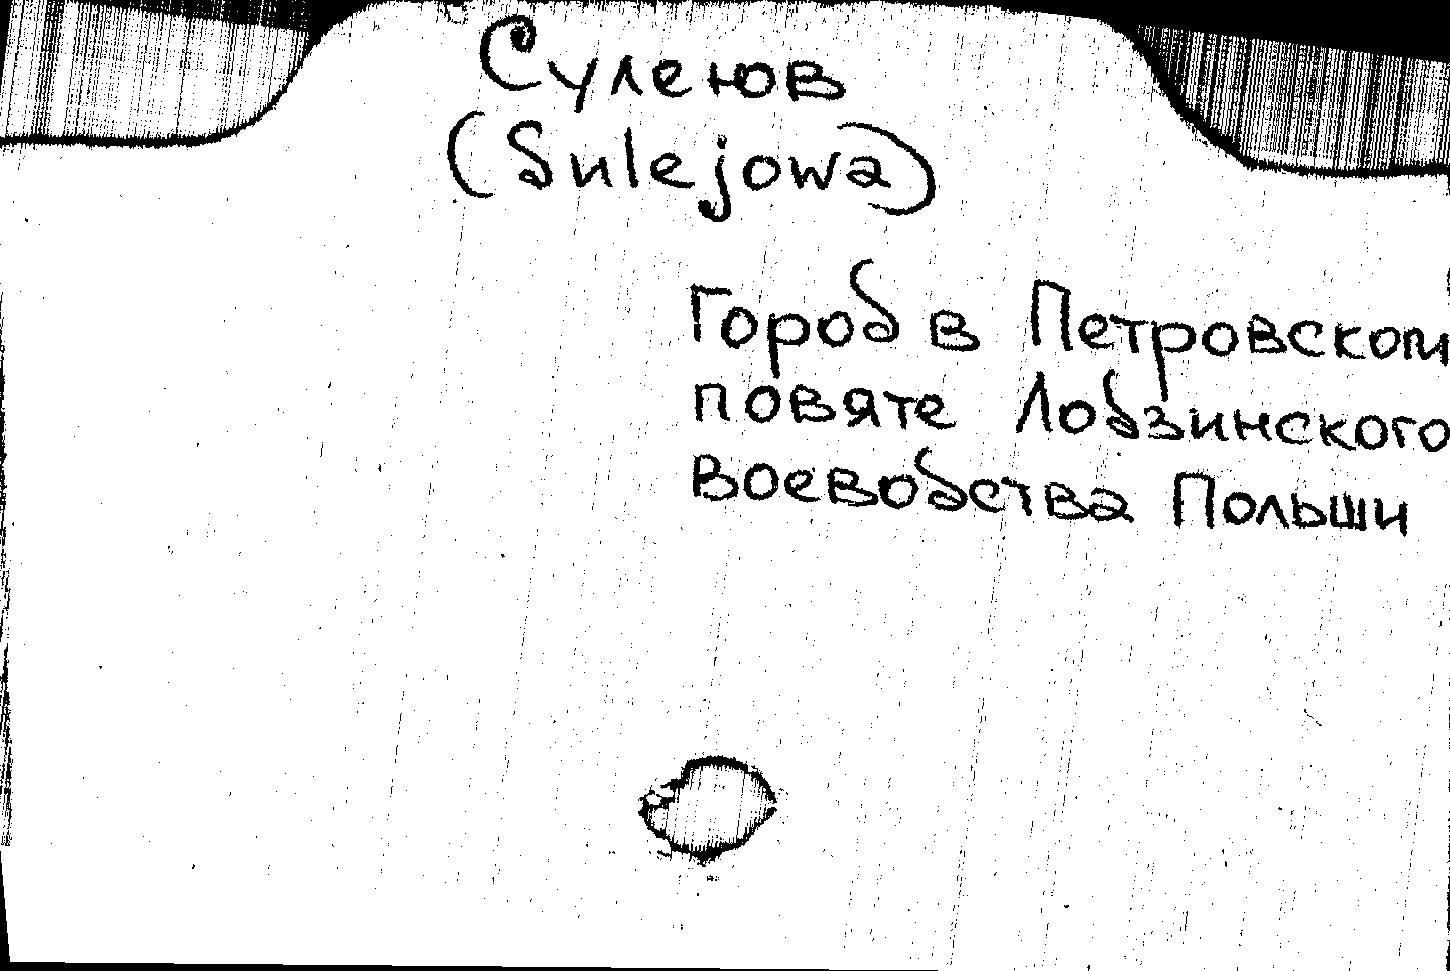 Сулеюв
(Sulejowa)
Город в Петровском
повяте Лодзинского
воеводства Польши